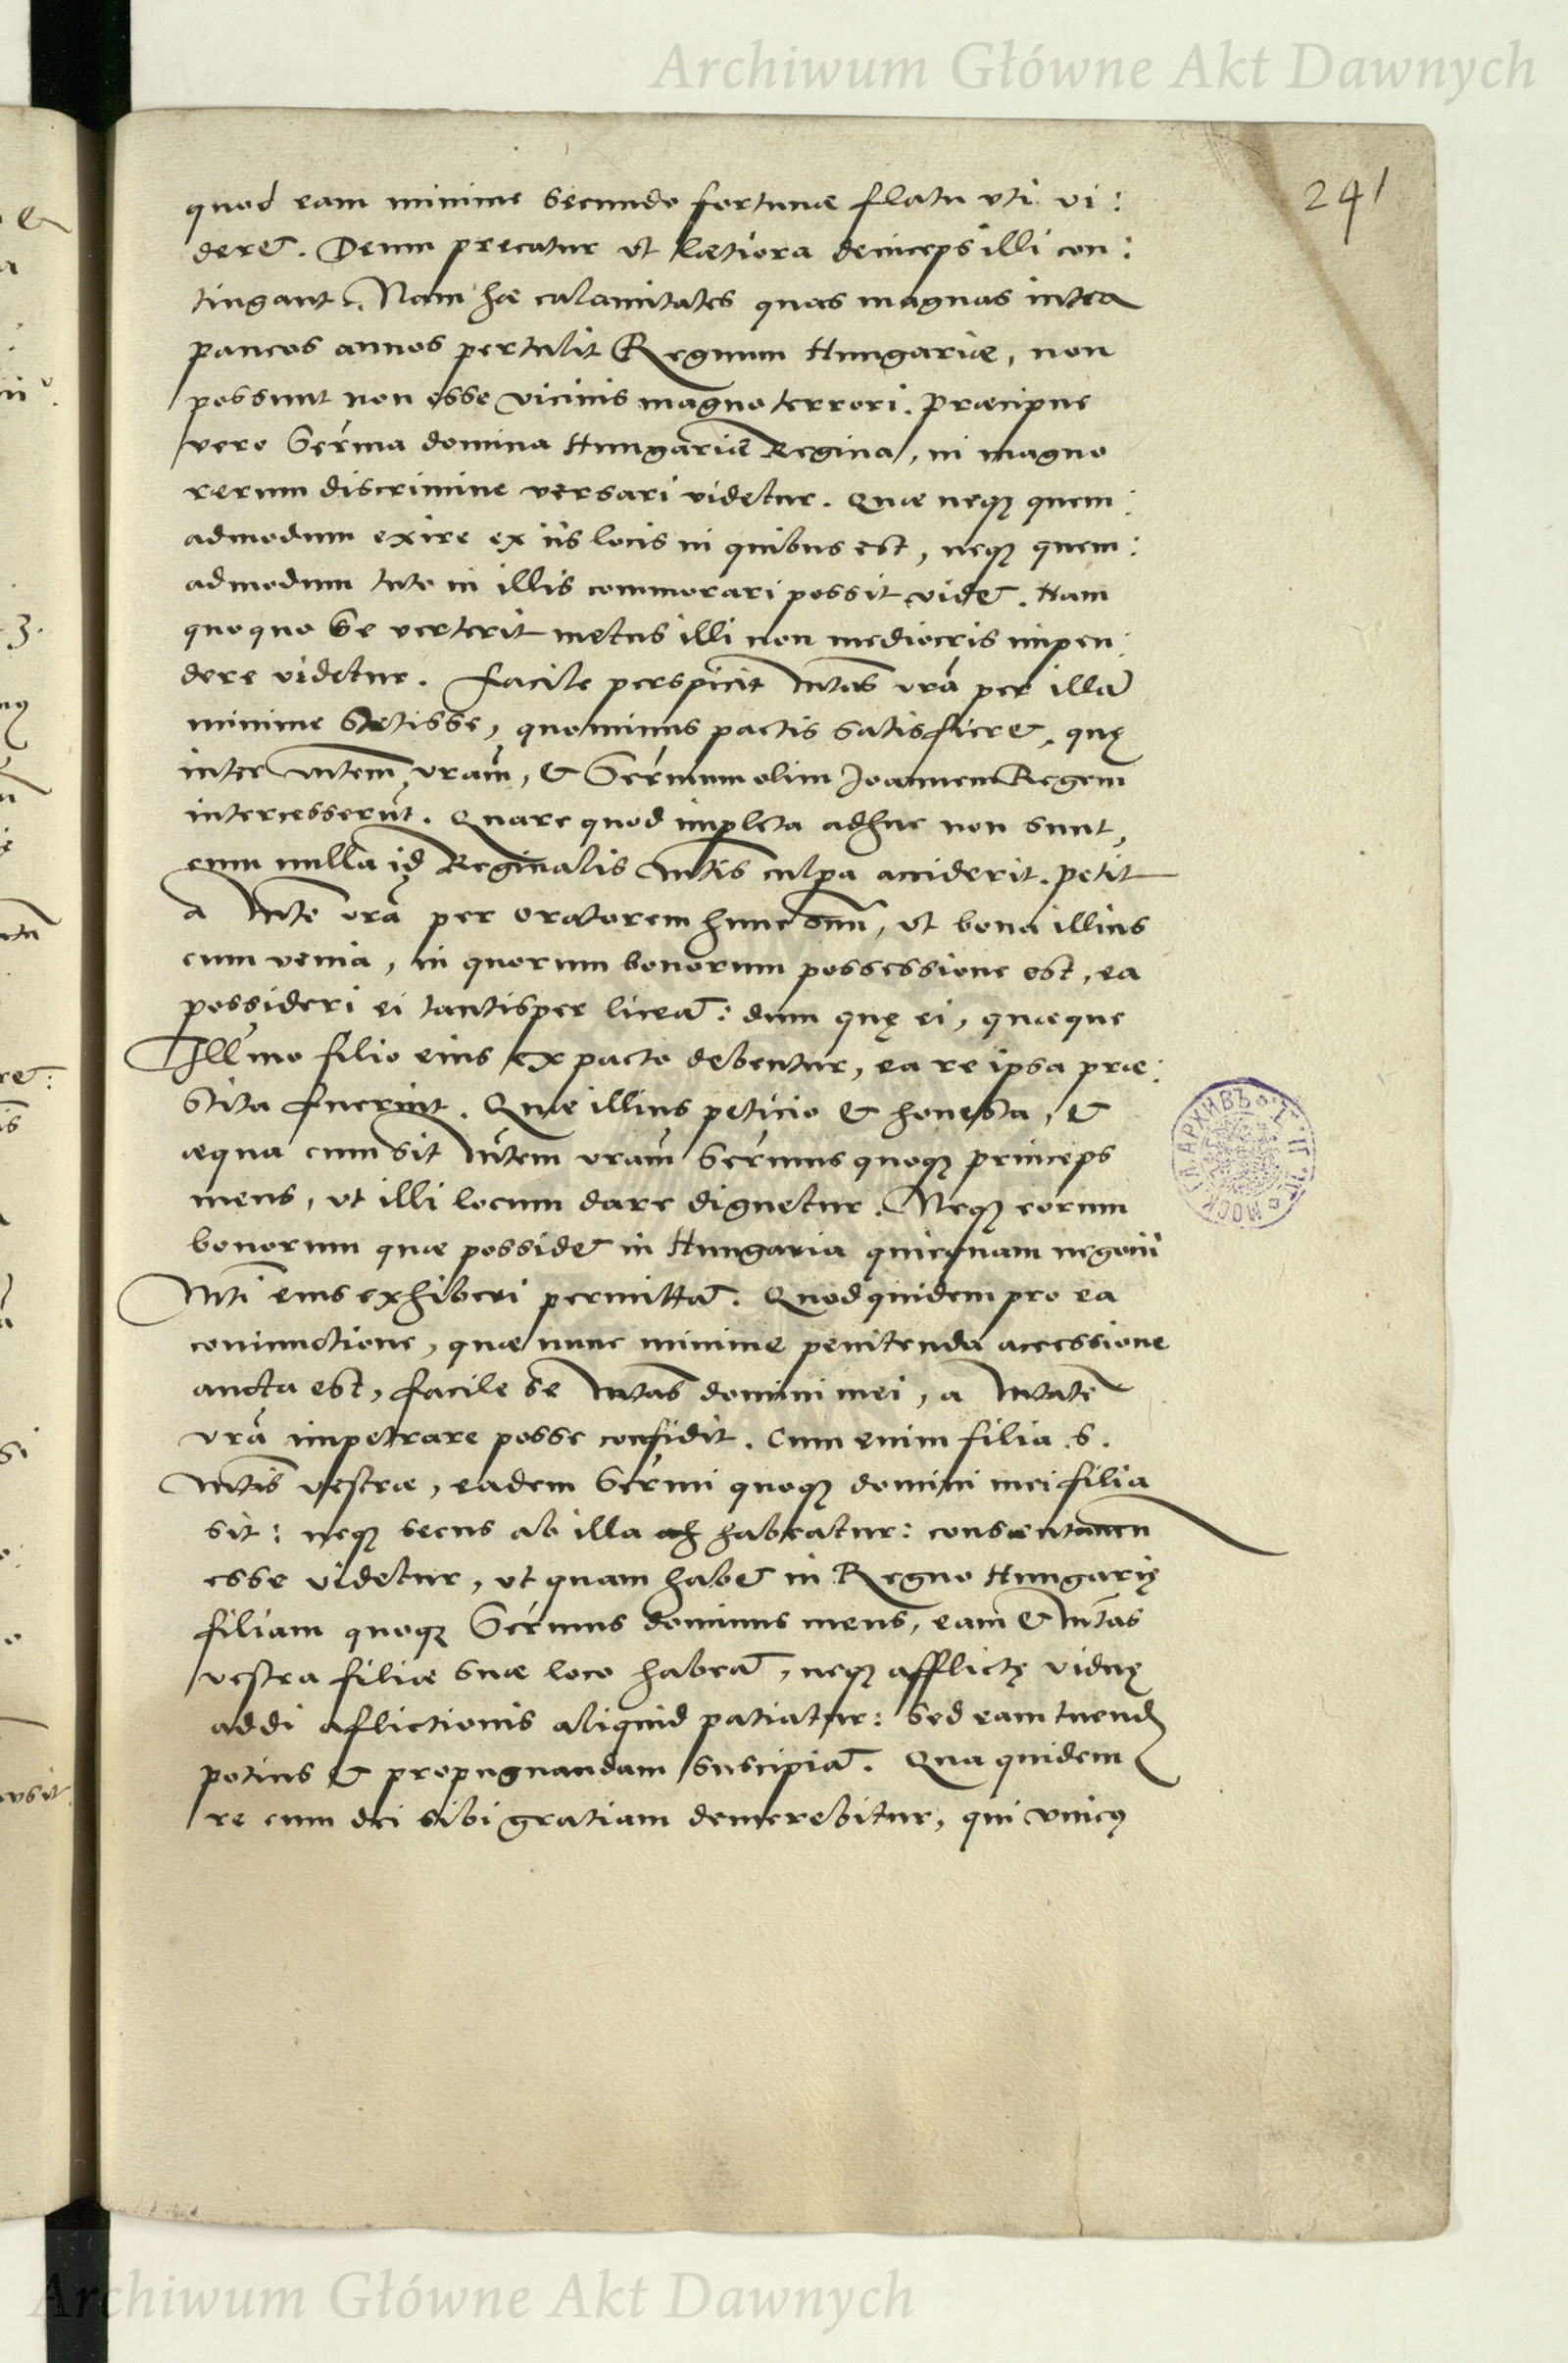 Archiwum Główne Akt Dawnych
241
quod eam minime secundo fortunæ flatu uti vi:
deret. Deum precatur ut lætiora deinceps illi con:
tingant. Nam hæ calamitates quas magnas intra
paucos annos pertulit Regnum Hungariæ, non
possunt non esse vicinis magno terrori. Præcipue
vero Serma domina Hungariæ Regina, in magno
rerum discrimine versari videtur. Quæ neqz quem:
admodum exire ex iis locis in quibus est, neqz quem:
admodum tuto in illis commorari possit videt. Nam
quoquo se verterit metus illi non mediocris impen:
dere videtur. Facile perspicit Mtas vrã per illã
minime stetisse, quominus pactis satisfieret, quę
inter Mtem vram, et Sermum olim Joannem Regem
intercesserũt. Quare quod impleta adhuc non sunt,
cum nulla id Reginalis Mtis culpa acciderit. petit
a Mte vrã per oratorem hunc suũ, ut bona illius
cum venia, in quorum bonorum possessione est, ea
possideri ei tantisper liceat: dum quę ei, quæque
Illmo filio eius ex pacto debentur, ea re ipsa præ:
stita fuerint. Quæ illius peticio et honesta, et
æqua cum sit Mtem vram Sermus quoqz princeps
meus, ut illi locum dare dignetur. Neqz eorum
bonorum quæ possidet in Hungaria quicquam negocii
Mti eius exhiberi permittat. Quod quidem pro ea
coniunctione, quæ nunc minime penitenda accessione
aucta est, facile se Mtas domini mei, a Mtate
vrã impetrare posse confidit. Cum enim filia .S.
Mtis vestræ, eadem Sermi quoqz domini mei filia
sit: neqz secus ab illa habeatur: consentaneũ
esse videtur, ut quam habet in Regno Hungarię
filiam quoqz Sermus dominus meus, eam et Mtas
vestra filiæ suæ loco habeat, neqz afflictę viduę
addi aflictionis aliquid patiatur: sed eam tuendã
potius et propugnandam suscipiat. Qua quidem
re cum dei sibi gratiam demerebitur, qui unicų
Archiwum Główne Akt Dawnych